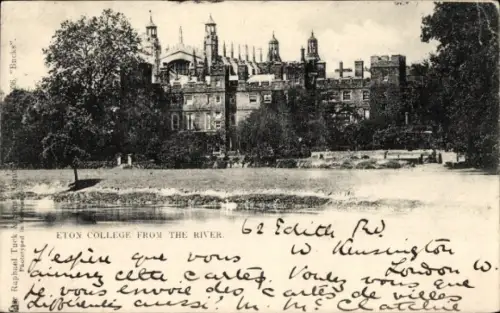 "Bucks"
Raphael Tuck &
ETON COLLEGE FROM THE RIVER.
62 Edith Rd
W. Kensington
London W.
J'espère que vous
aimerez cette carte. Voulez vous que
je vous envoie des cartes de villes
différentes aussi? M. McClatchie